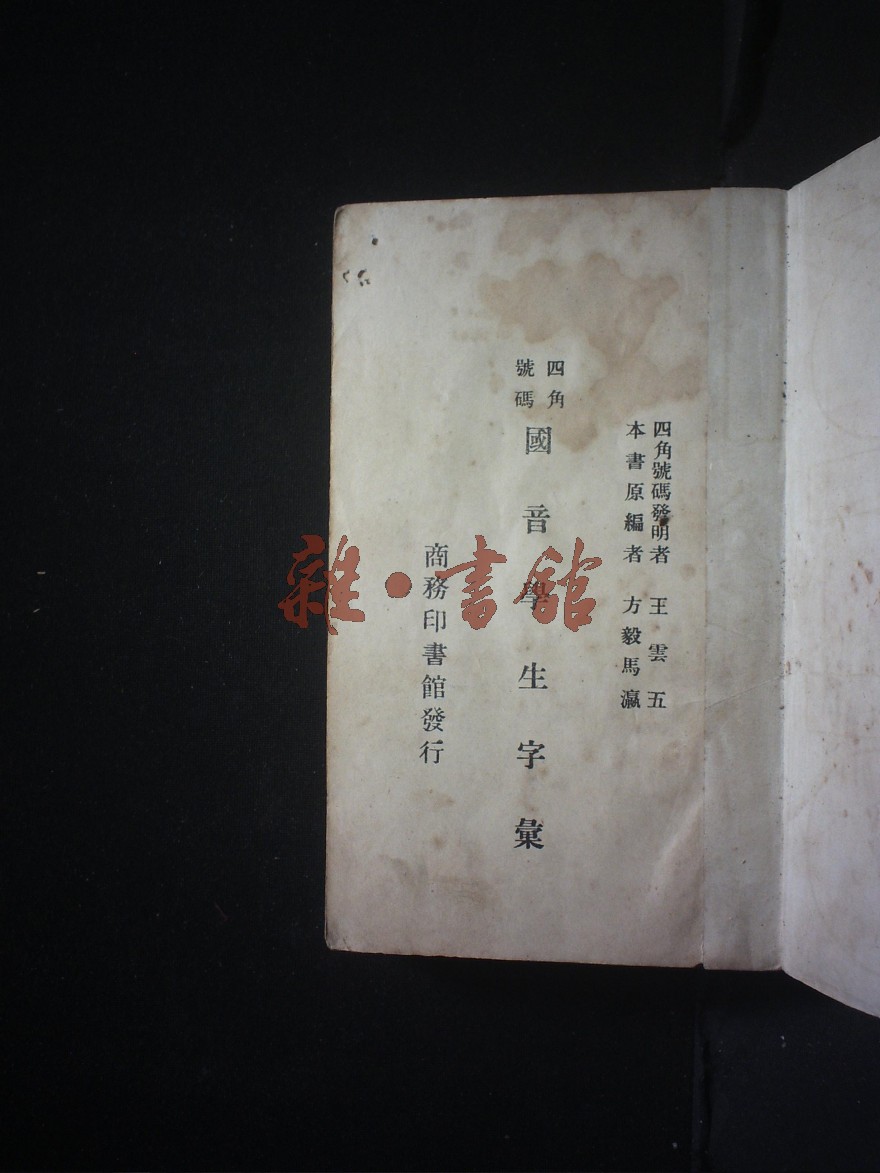 四角號碼發明者 王雲五
本書原編者 方毅馬瀛
四角
號碼
國音學生字彙
商務印書館發行
雜·書館